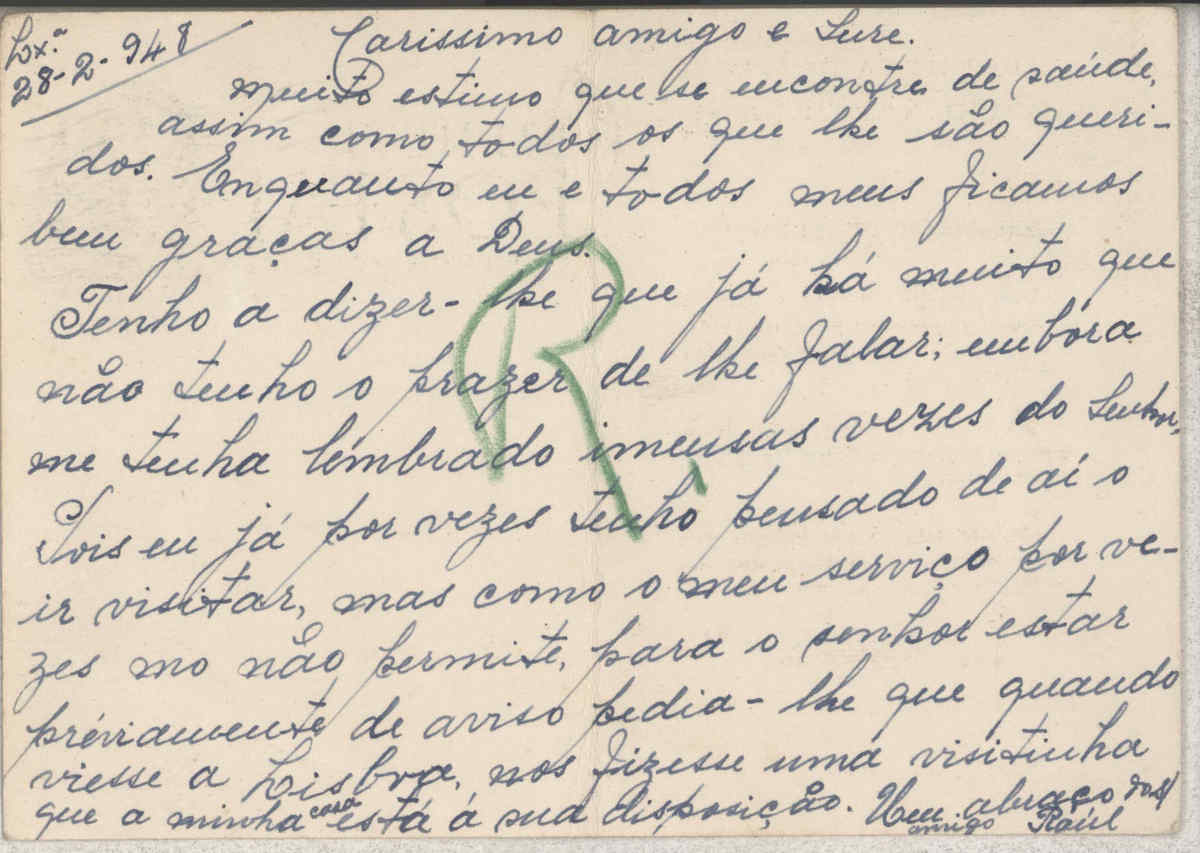 Lx.ª
28-2-948
Carissimo amigo e Sure.
muito estimo que se encontre de saúde,
assim como todos os que lhe são queri-
dos. Enquanto eu e todos meus ficamos
bem graças a Deus.
Tenho a dizer-lhe que já há muito que
não tenho o prazer de lhe falar; embóra
me tenha lembrado imensas vezes do Senhor,
Pois eu já por vezes tenho pensado de aí o
ir visitar, mas como o meu serviço por ve-
zes mo não permite, para o senhor estar
préviamente de aviso pedia-lhe que quando
viesse a Lisboa, nos fizesse uma visitinha
que a minha casa está á sua disposição. Um abraço dos
amigo Raúl
R.